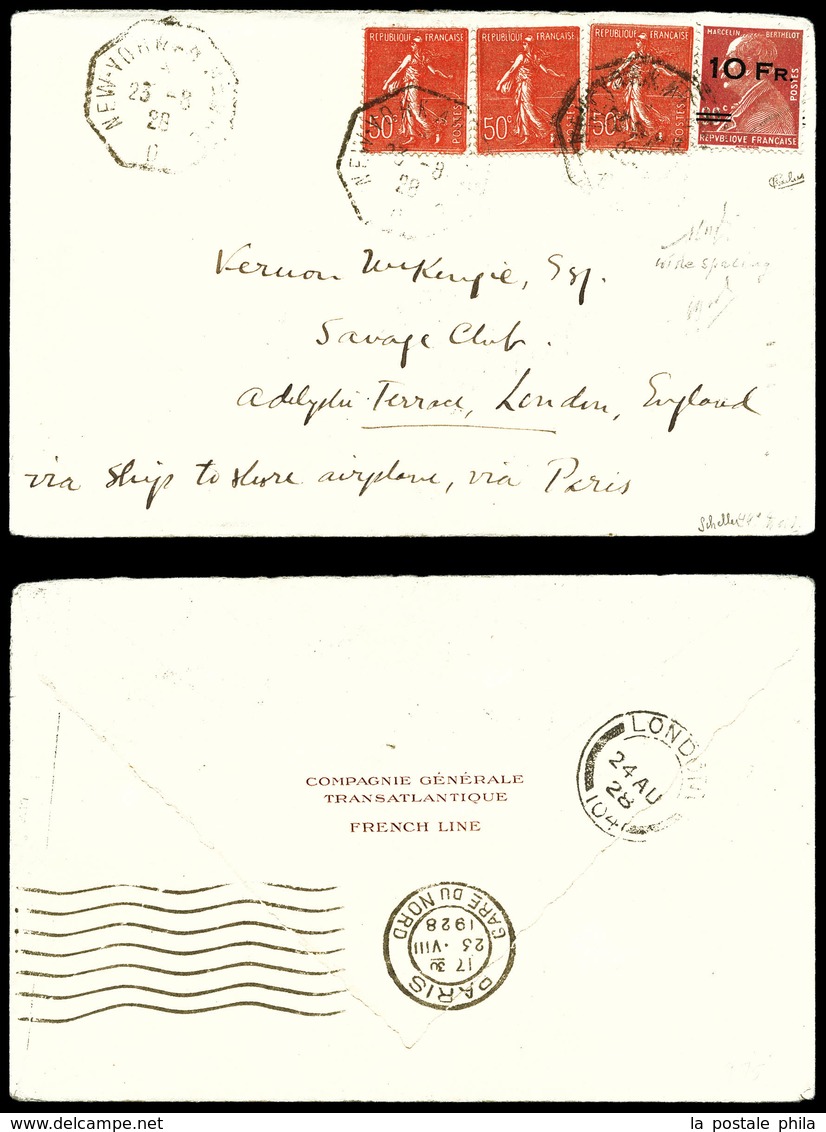 NEW-YORK
23 -8
28
REPUBLIQUE FRANÇAISE
50c
POSTES
REPUBLIQUE FRANÇAISE
50c
POSTES
REPUBLIQUE FRANÇAISE
50c
POSTES
MARCELIN BERTHELOT
10 FR.
POSTES
REPVBLIQUE FRANÇAISE
NEW-YORK
-8
28
wide spacing
Vernon McKenzie, Esq.
Savage Club.
Adelphi Terrace, London, England
via ship to shore airplane, via Paris
Scheller
COMPAGNIE GÉNÉRALE
TRANSATLANTIQUE
FRENCH LINE
LONDON
24 AU
28
PARIS
17 30
23 · VIII
1928
GARE DU NORD
la postale phila